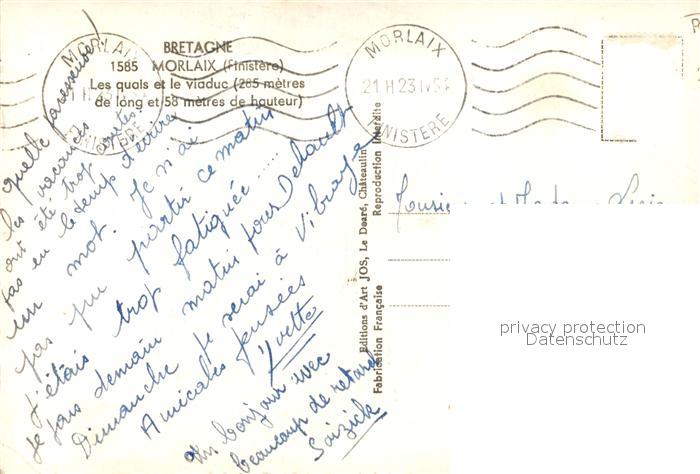 BRETAGNE
1585 MORLAIX (Finistère)
Les quais et le viaduc (285 mètres
de long et 58 mètres de hauteur)
MORLAIX
FINISTERE
MORLAIX
21 H 23 IV 5
FINISTERE
quelle paresseuse!
les vacances
ont été trop courtes
pas eu le temps d'écrire
un mot. Je n'ai
pas pu partir ce matin
j'étais trop fatiguée.....
Je pars demain matin pour Dehault
Dimanche je serai à Vibraye
Amicales pensées
Yvette
Un bonjour avec
beaucoup de retard
Soizick
Editions d'Art JOS, Le Doaré, Châteaulin
Reproduction Interdite
Fabrication Française
Monsieur et Madame
privacy protection
Datenschutz